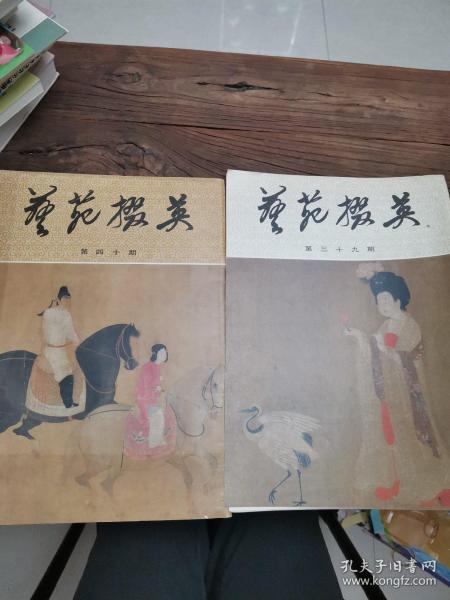 藝苑掇英
第四十期
藝苑掇英
第三十九期
孔夫子旧书网
www.kongfz.com